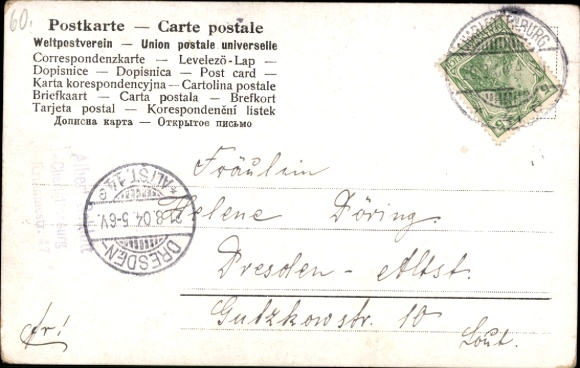 60.
Postkarte — Carte postale
Weltpostverein — Union postale universelle
Correspondenzkarte — Levelező-Lap —
Dopisnice — Dopisnica — Post card —
Karta korespondencyjna — Cartolina postale
Briefkaart — Carta postala — Brefkort
Tarjeta postal — Korespondenční listek
Дописна карта — Открытое письмо
CHARLOTTENBURG
DRESDEN-
*ALTST.14e
21.8.04.5-6V.
Fräulein
Helene Döring.
Dresden - Altst.
Gutzkowstr. 10
fr!